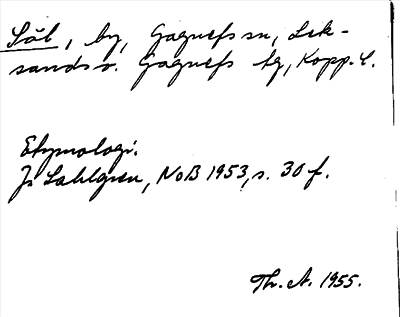 Sål, by, Gagnefs sn, Lek-
sands o. Gagnefs tg, Kopp. l.
Etymologi.
J. Sahlgren, NoB 1953, s. 30 f.
Th. A. 1955.